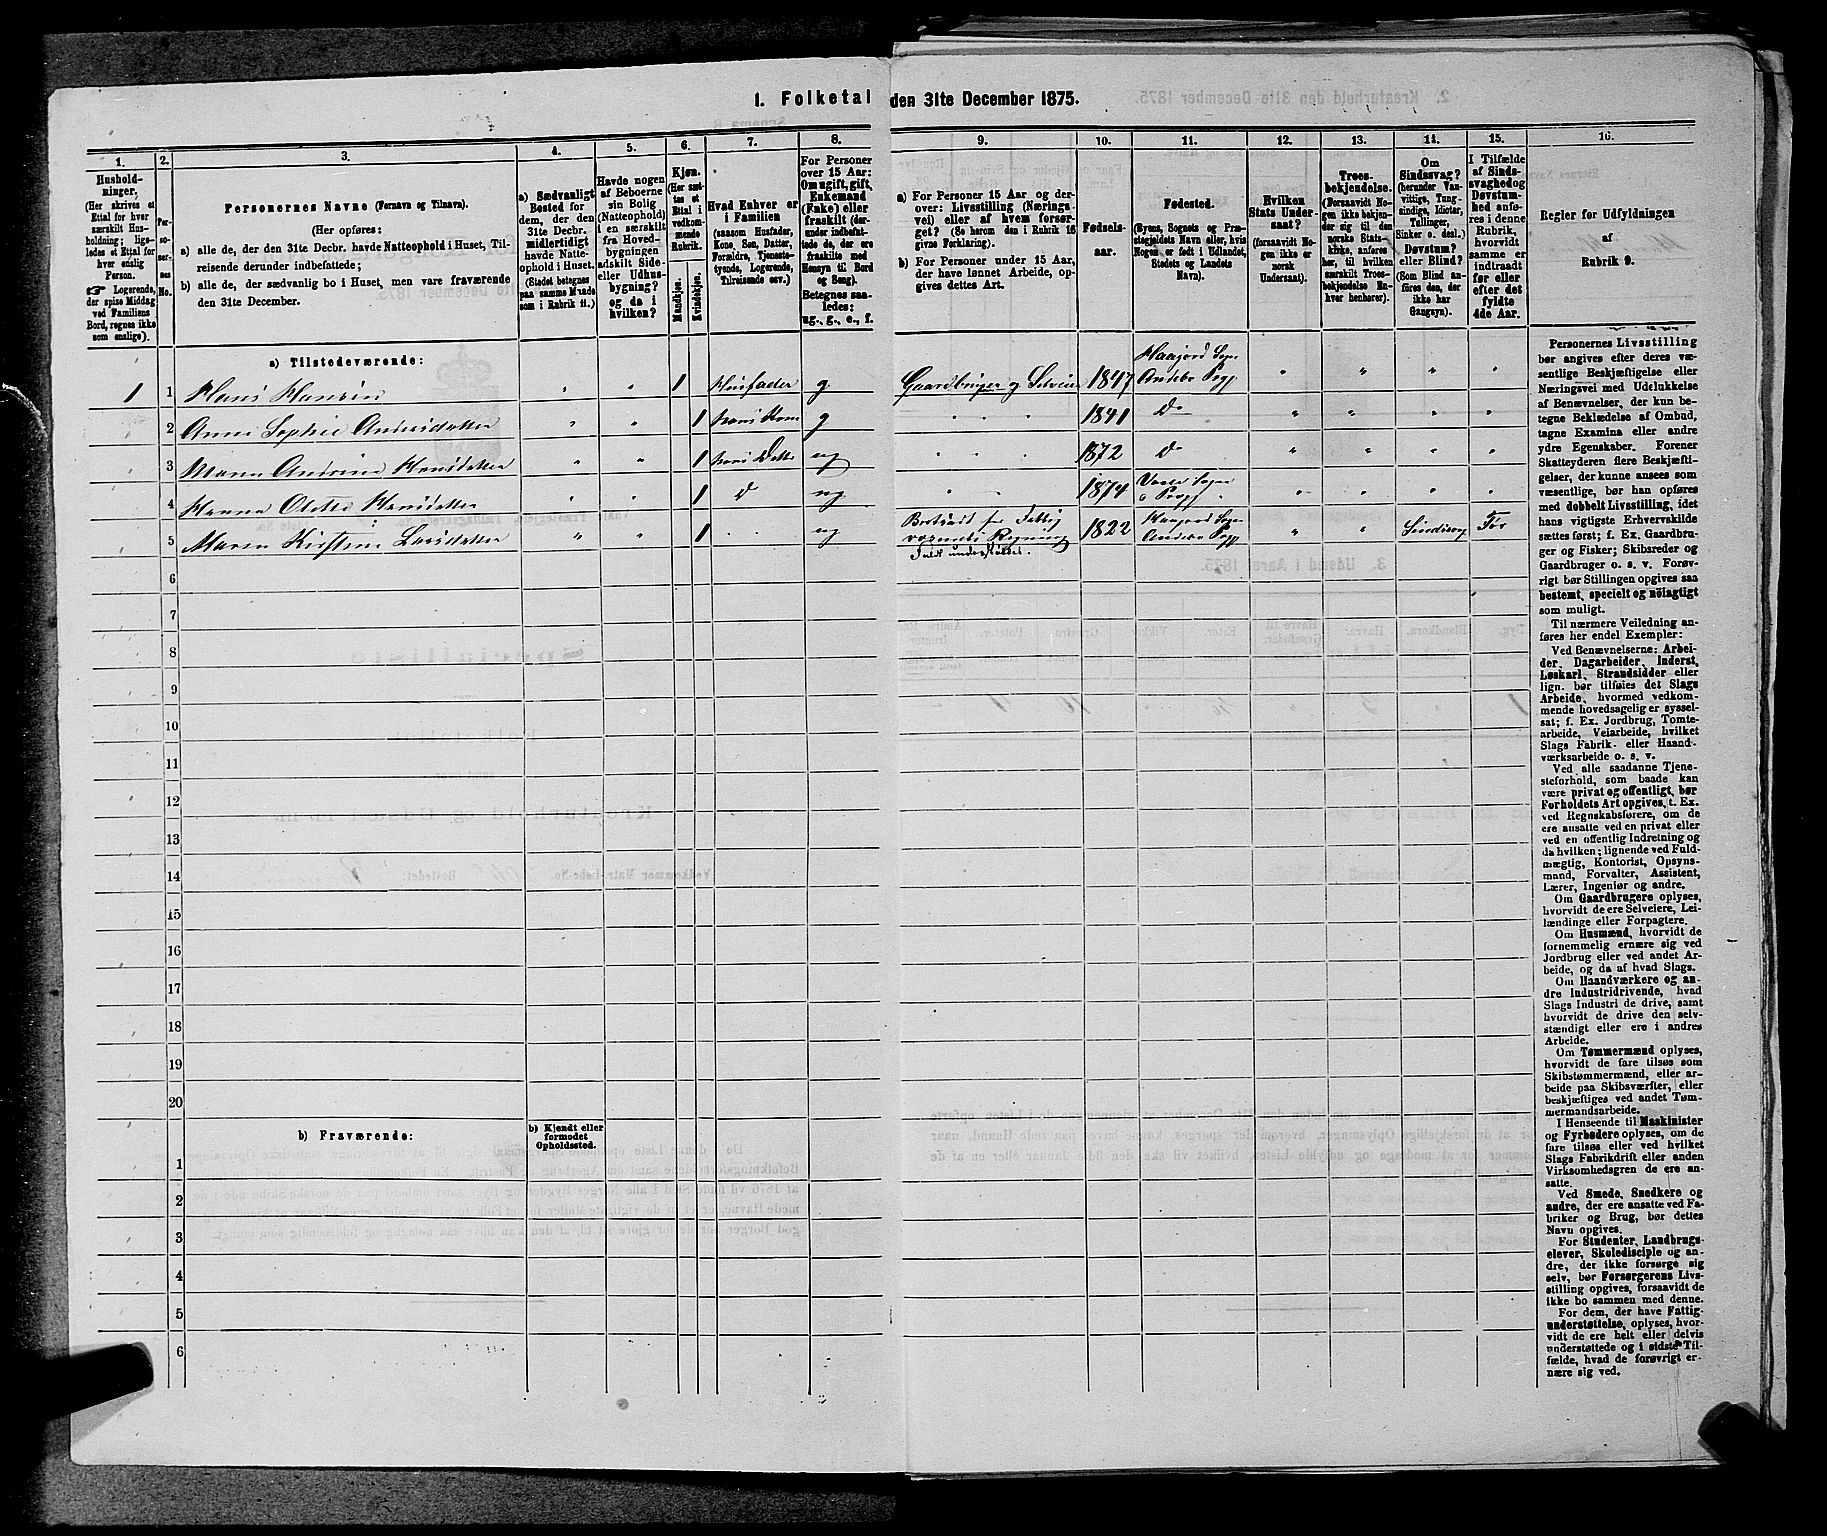 1. Folketal den 31te December 1875.
1.
2.
3.
4.
5.
6.
7.
8.
9.
10.
11.
12.
13.
14.
15.
16.
Hushold-
ninger,
(Her skrives et
Ettal for hver
særskilt Hus-
holdning; lige-
ledes et Ettal for
hver enslig
Person.
☞ Logerende,
der spise Middag
ved Familiens
Bord, regnes ikke
som enslige).
Per-
so-
ner-
nes
No.
Personernes Navne (Fornavn og Tilnavn).
(Her opføres:
a) alle de, der den 31te Decbr. havde Natteophold i Huset, Til-
reisende derunder indbefattede;
b) alle de, der sædvanlig bo i Huset, men vare fraværende
den 31te December.
a) Sædvanligt
Bosted for
dem, der den
31te Decbr.
midlertidigt
havde Natte-
ophold i Huset.
(Stedet betegnes
paa samme Maade
som i Rubrik 11.)
Havde nogen
af Beboerne
sin Bolig
(Natteophold)
i en særskilt
fra Hoved-
bygningen
adskilt Side-
eller Udhus-
bygning?
og da i
hvilken?
Kjøn.
(Her sæt-
tes et
Ettal i
vedkom-
mende
Rubrik.
Mandkjøn.
Kvindekjøn.
Hvad Enhver er
i Familien
(saasom Husfader,
Kone, Søn, Datter,
Forældre, Tjeneste-
tyende, Logerende,
Tilreisende osv.)
For Personer
over 15 Aar:
Om ugift, gift,
Enkemand
(Enke) eller
fraskilt (der-
under indbefat-
tede de, der ere
fraskilte med
Hensyn til Bord
og Seng).
Betegnes saa-
ledes:
ug., g., e., f.
a) For Personer 15 Aar og der-
over: Livsstilling (Nærings-
vei) eller af hvem forsør-
get? (Se herom den i Rubrik 16
givne Forklaring).
b) For Personer under 15 Aar,
der have lønnet Arbeide, op-
gives dettes Art.
Fødsels-
aar.
Fødested.
(Byens, Sognets og Præ-
stegjeldets Navn eller, hvis
Nogen er født i Udlandet,
Stedets og Landets
Navn).
Hvilken
Stats Under-
saat?
(forsaavidt No-
gen ikke er
norsk
Undersaat).
Troes-
bekjendelse.
(Forsaavidt No-
gen ikke bekjen-
der sig til den
norske Stats-
kirke, anføres
her, til hvilken
særskilt Troes-
bekjendelse En-
hver henhører).
Om
Sindssvag?
(herunder Van-
vittige, Tung-
sindige, Idioter,
Tullinger,
Sinker o. desl.)
Døvstum?
eller Blind?
(Som Blind an-
føres den, der
ikke har
Gangsyn).
I Tilfælde
af Sinds-
svaghed og
Døvstum-
hed anfø-
res i denne
Rubrik,
hvorvidt
samme er
indtraadt
før eller
efter det
fyldte
4de Aar.
Regler for Udfyldningen
af
Rubrik 9.
a) Tilstedeværende:
1 1 Hans Hansen " " 1 Husfader g Gaardbruger og Selveier 1847 Haajord Sogn Andebo Prgj " " " "
2 Anne Sophie Andersdatter " " 1 hans Kone g " " 1841 Do " " " "
3 Maren Andrine Hansdatter " " 1 hans Datter ug " " 1872 Do " " " "
4 Hanna Olette Hansdatter " " 1 D ug " " 1874 Vaale Sogn o Prgj " " " "
5 Maren Kirstine Larsdatter " " 1 " " ug Bortsadt for Fattig 1822 Haajord Sogn Andebo Prgj " " Sindssvag Før
væsenets Regning
Fuldt understøttet.
6
7
8
9
10
11
12
13
14
15
16
17
18
19
20
b) Fraværende:
b) Kjendt eller
formodet
Opholdssted.
1
2
3
4
5
6
Personernes Livsstilling
bør angives efter deres væ-
sentlige Beskjæftigelse eller
Næringsvei med Udelukkelse
af Benævnelser, der kun be-
tegne Beklædelse af Ombud,
tagne Examina eller andre
ydre Egenskaber. Forener
Skatteyderen flere Beskjæfti-
gelser, der kunne ansees som
væsentlige, bør han opføres
med dobbelt Livsstilling, idet
hans vigtigste Erhvervskilde
sættes først; f. Ex. Gaardbru-
ger og Fisker; Skibsreder og
Gaardbruger o. s. v. Forøv-
rigt bør Stillingen opgives saa
bestemt, specielt og nøiagtigt
som muligt.
Til nærmere Veiledning an-
føres her endel Exempler:
Ved Benævnelserne: Arbei-
der, Dagarbeider, Inderst,
Løskarl, Strandsidder eller
lign. bør tilføies det Slags
Arbeide, hvormed vedkom-
mende hovedsagelig er syssel-
sat; f. Ex. Jordbrug, Tomte-
arbeide, Veiarbeide, hvilket
Slags Fabrik- eller Haand-
værksarbeide o. s. v.
Ved alle saadanne Tjene-
steforhold, som baade kan
være privat og offentligt, bør
Forholdets Art opgives, t. Ex.
ved Regnskabsførere, om de
ere ansatte ved en privat eller
ved en offentlig Indretning og
da hvilken; lignende ved Fuld-
mægtig, Kontorist, Opsyns-
mand, Forvalter, Assistent,
Lærer, Ingeniør og andre.
Om Gaardbrugere oplyses,
hvorvidt de ere Selveiere, Lei-
lændinge eller Forpagtere.
Om Husmænd, hvorvidt de
fornemmelig ernære sig ved
Jordbrug eller ved andet Ar-
beide, og da af hvad Slags.
Om Haandværkere og an-
dre Industridrivende, hvad
Slags Industri de drive, samt
hvorvidt de drive den selv-
stændigt eller ere i andres
Arbeide.
Om Tømmermænd oplyses,
hvorvidt de fare tilsøs som
Skibstømmermænd, eller ar-
beide paa Skibsværfter, eller
beskjæftiges ved andet Tøm-
mermandsarbeide.
I Henseende til Maskinister
og Fyrbødere oplyses, om de
fare tilsøs eller ved hvilket
Slags Fabrikdrift eller anden
Virksomhedsgren de ere an-
satte.
Ved Smede, Snedkere og
andre, der ere ansatte ved Fa-
briker og Brug, bør dettes
Navn opgives.
For Studenter, Landbrugs-
elever, Skoledisciple og an-
dre, der ikke forsørge sig
selv, bør Forsørgerens Livs-
stilling opgives, forsaavidt de
ikke bo sammen med denne.
For dem, der have Fattig-
understøttelse, oplyses, hvor-
vidt de ere helt eller delvis
understøttede og i sidste Til-
fælde, hvad de forøvrigt er-
nære sig ved.